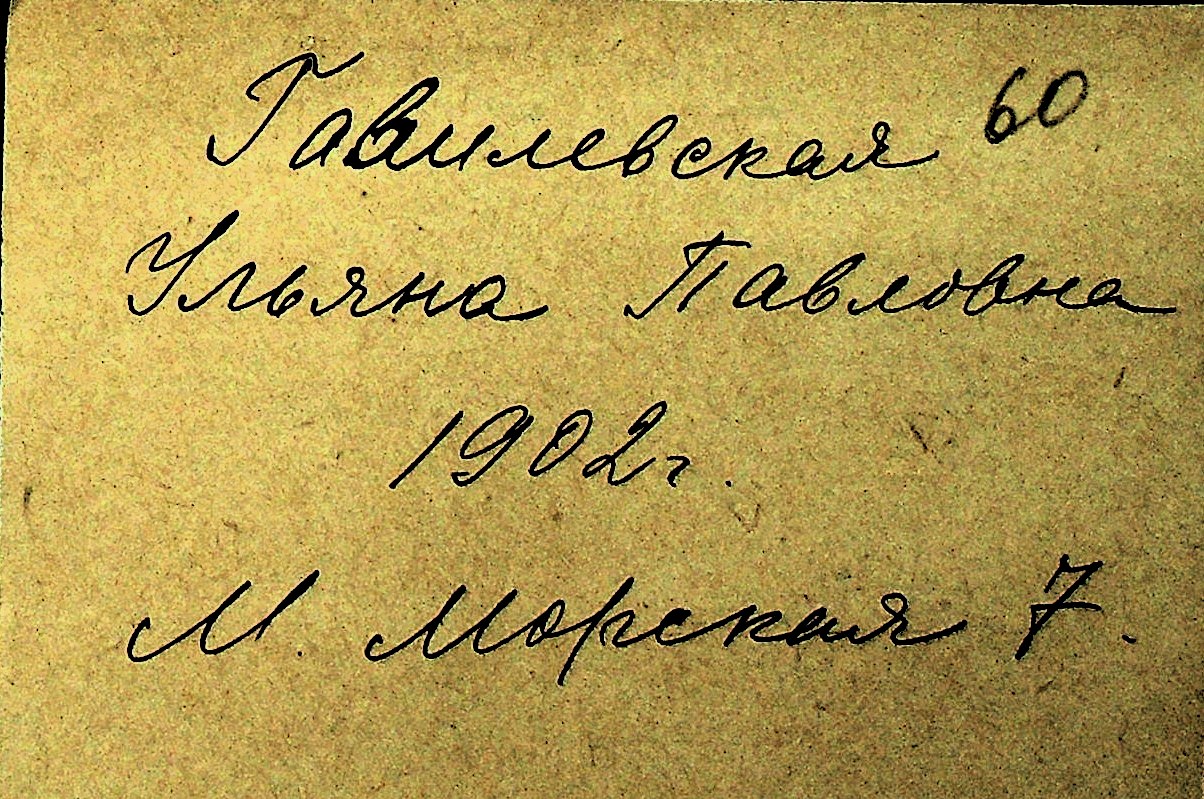 Гавилевская 60
Ульяна Павловна
1902г.
М. Морская 7.